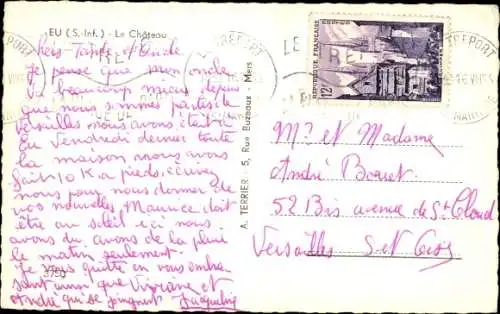 EU (S.-Inf.) - Le Château
Chers Tante et Oncle
Je pense que mon oncle
va beaucoup mieux depuis
que nous sommes partis de
Versailles nous avons été à
Eu Vendredi dernier toute
la maison, nous avons
fait 10 K à pieds, écrivez
nous pour nous donner de
vos nouvelles, Maurice doit
être au soleil ici nous
avons du avons de la pluie
le matin seulement.
Je vous quitte en vous embra-
ssant ainsi que Viviane et
André qui se joignent Jacqueline
3750
A. TERRIER - 5, Rue Buzeaux - Mers
LE TREPORT
REPUBLIQUE FRANÇAISE
12F
Mr et Madame
André Boquet
52 Bis avenue de St Cloud
Versailles S. et Oise